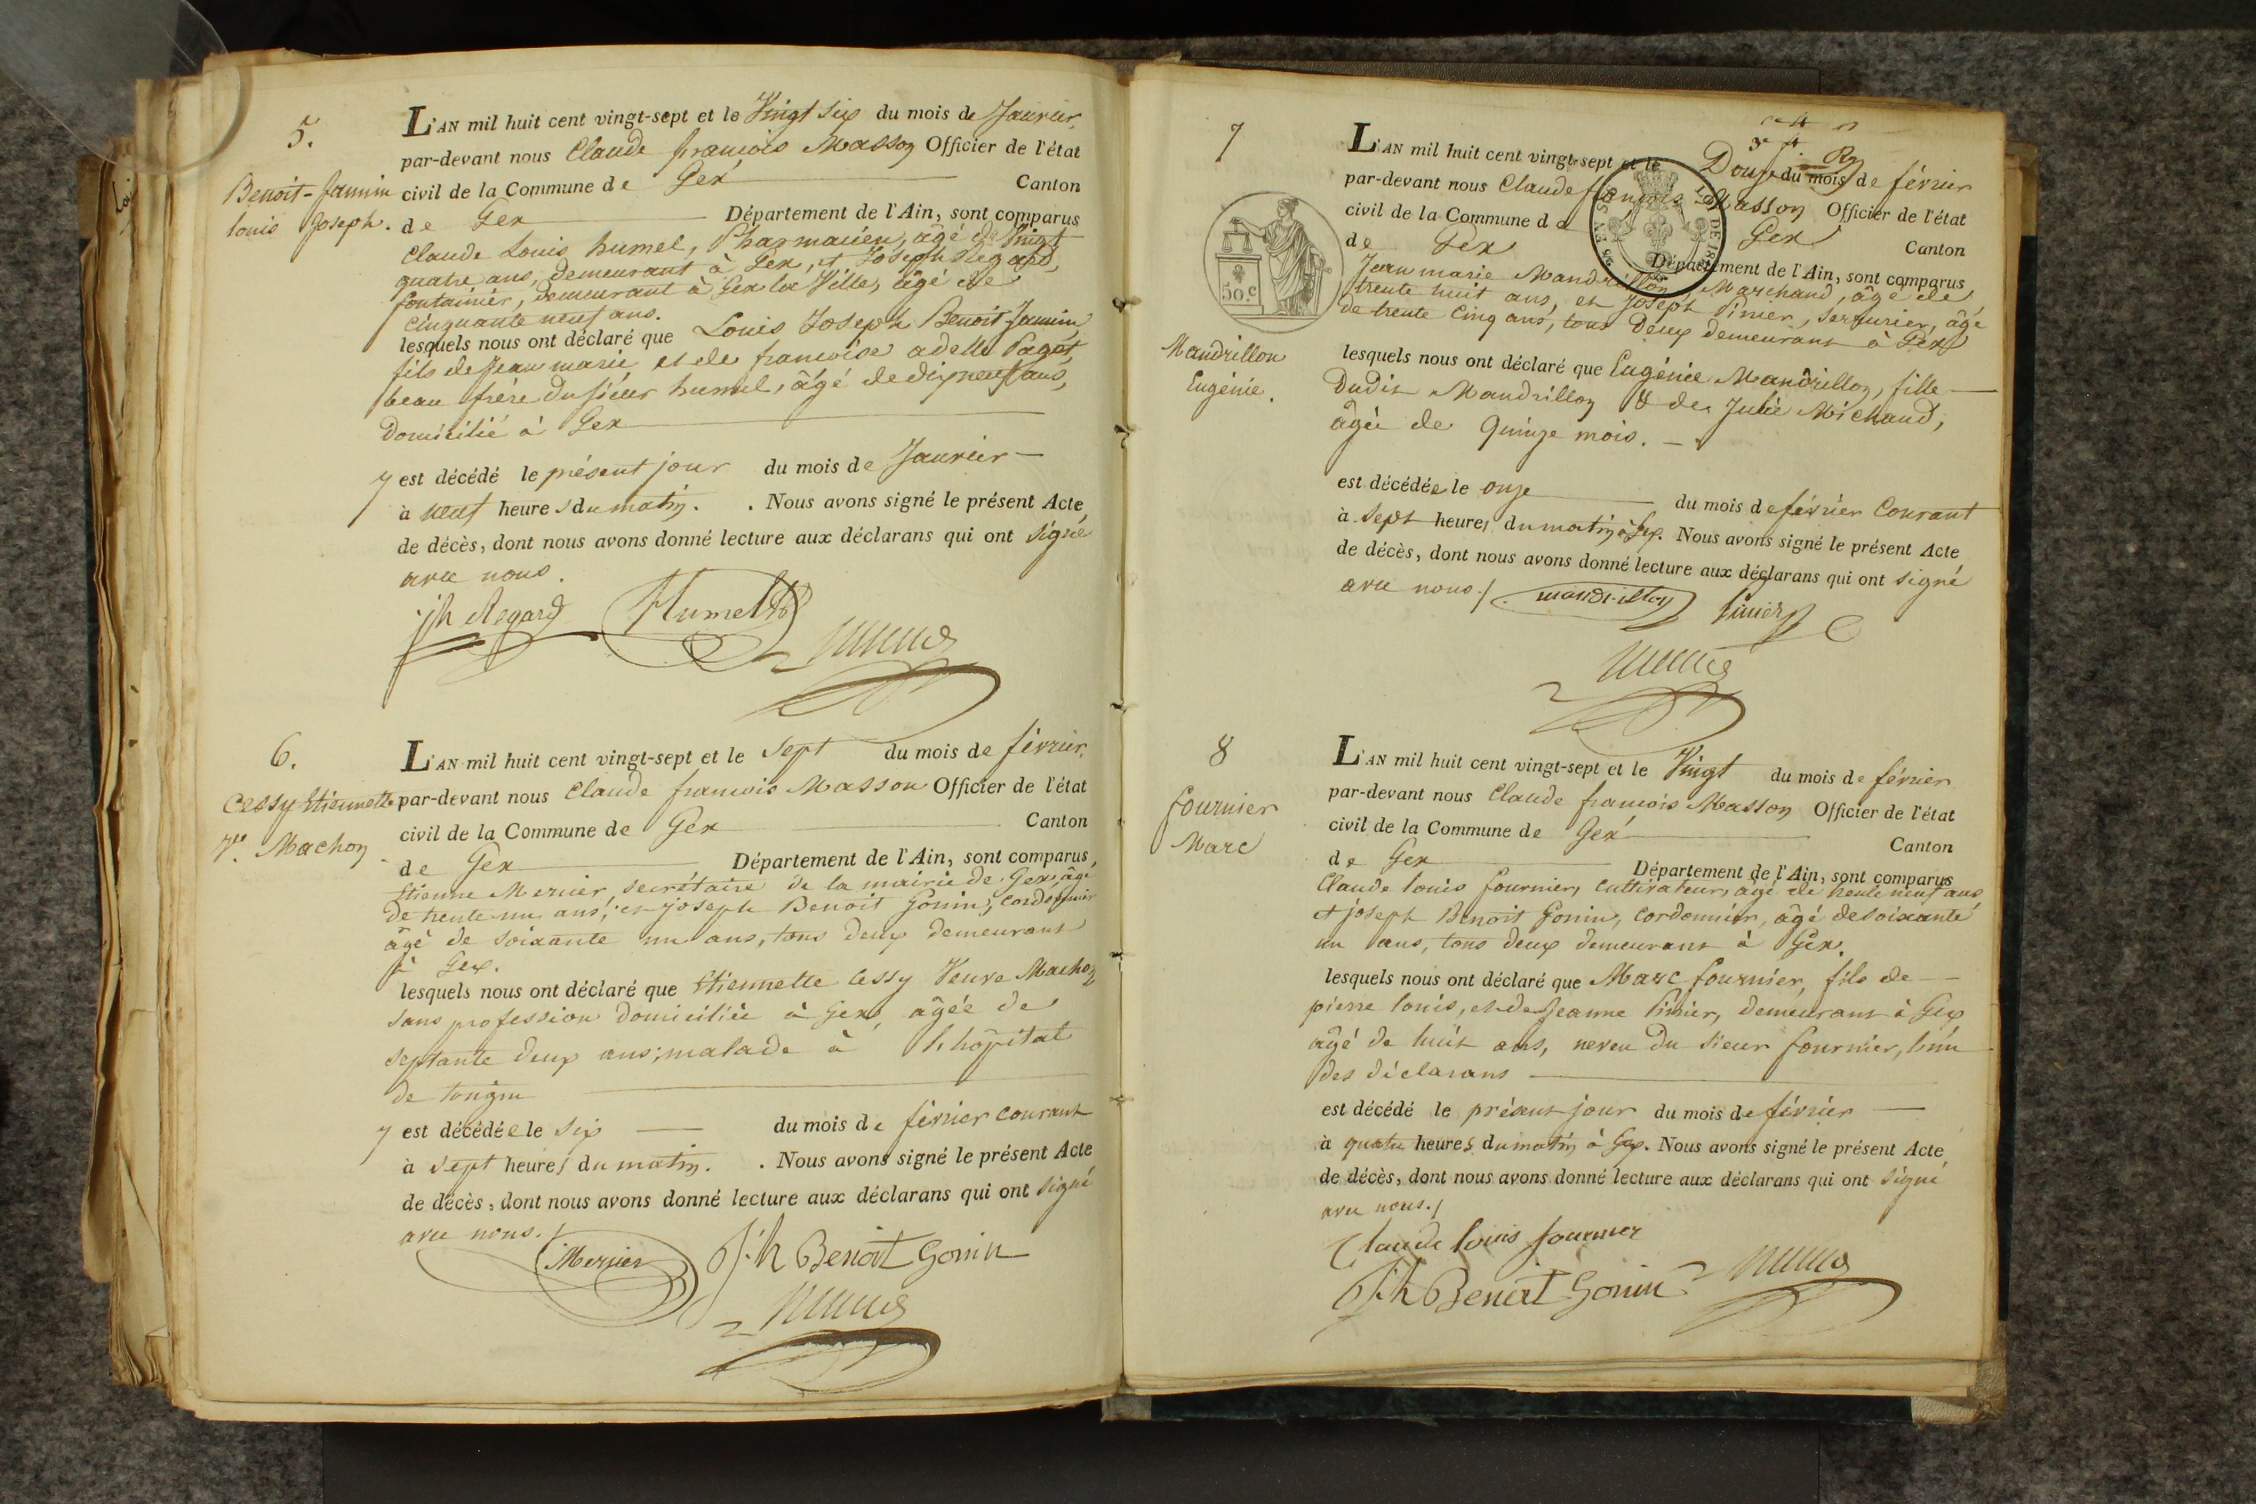 5.
Benoit-Jannin
louis Joseph.
L'AN mil huit cent vingt-sept et le Vingt six du mois de Janvier,
par-devant nous Claude françois Masson Officier de l'état
civil de la Commune de Gex Canton
de Gex Département de l'Ain, sont comparus
Claude Louis humel, Pharmacien, âgé de Vingt
quatre ans, demeurant à Gex, et Joseph Regard,
fontainier, demeurant à Gex la Ville, âgé de
cinquante neuf ans.
lesquels nous ont déclaré que Louis Joseph Benoit Jannin,
fils de Jean marie et de francoise adelle Paget,
beau frère du sieur humel, âgé de dix neuf ans,
domicilié à Gex
est décédé le présent jour du mois de Janvier —
à neuf heures du matin. . Nous avons signé le présent Acte
de décès, dont nous avons donné lecture aux déclarans qui ont signé
avec nous.
jh Regard Humel
6.
Cessy Etiennette
Ve. Machon
L'AN mil huit cent vingt-sept et le Sept du mois de février,
par-devant nous Claude francois Masson Officier de l'état
civil de la Commune de Gex Canton
de Gex Département de l'Ain, sont comparus,
Etienne Mercier, secrétaire de la mairie de Gex, âgé
de trente un ans, et joseph Benoit Gonin, Cordonnier
âgé de soixante un ans, tous deux demeurant
à Gex.
lesquels nous ont déclaré que Etiennette Cessy Veuve Machon
sans profession domiciliée à Gex, âgée de
septante deux ans, malade à l'hôpital
de tougin
est décédée le six — du mois de février courant
à sept heures du matin. . Nous avons signé le présent Acte
de décès, dont nous avons donné lecture aux déclarans qui ont signé
avec nous./
Mercier Jh Benoit Gonin
7
50.c
Mandrillon
Eugénie.
L'AN mil huit cent vingt-sept et le Douze du mois de février
par-devant nous Claude françois Masson Officier de l'état
civil de la Commune de Gex Canton
de Gex Département de l'Ain, sont comparus
Jean marie Mandrillon Marchand, âgé de
trente huit ans, et Joseph Pinier, serrurier, âgé
de trente Cinq ans, tous Deux demeurant à Gex
lesquels nous ont déclaré que Eugénie Mandrillon, fille —
Dudit Mandrillon & de Julie Michaud,
âgée de quinze mois. —
est décédée le onze du mois de février Courant
à sept heures du matin à Gex. Nous avons signé le présent Acte
de décès, dont nous avons donné lecture aux déclarans qui ont signé
avec nous./ mandrillon Pinier
8
fournier
Marc
L'AN mil huit cent vingt-sept et le Vingt du mois de février
par-devant nous Claude francois Masson Officier de l'état
civil de la Commune de Gex Canton
de Gex Département de l'Ain, sont comparus
Claude louis fournier, cultivateur, âgé de trente neuf ans
et joseph Benoit Gonin, Cordonnier, âgé de soixante
un ans, tous deux demeurant à Gex.
lesquels nous ont déclaré que Marc fournier, fils de —
pierre louis, et de Jeanne Pinier, demeurant à Gex
âgé de huit ans, neveu du sieur fournier, l'un
des déclarans
est décédé le présent jour du mois de février —
à quatre heures du matin à Gex. Nous avons signé le présent Acte
de décès, dont nous avons donné lecture aux déclarans qui ont signé
avec nous./
Claude louis fournier
Jh Benoit Gonin